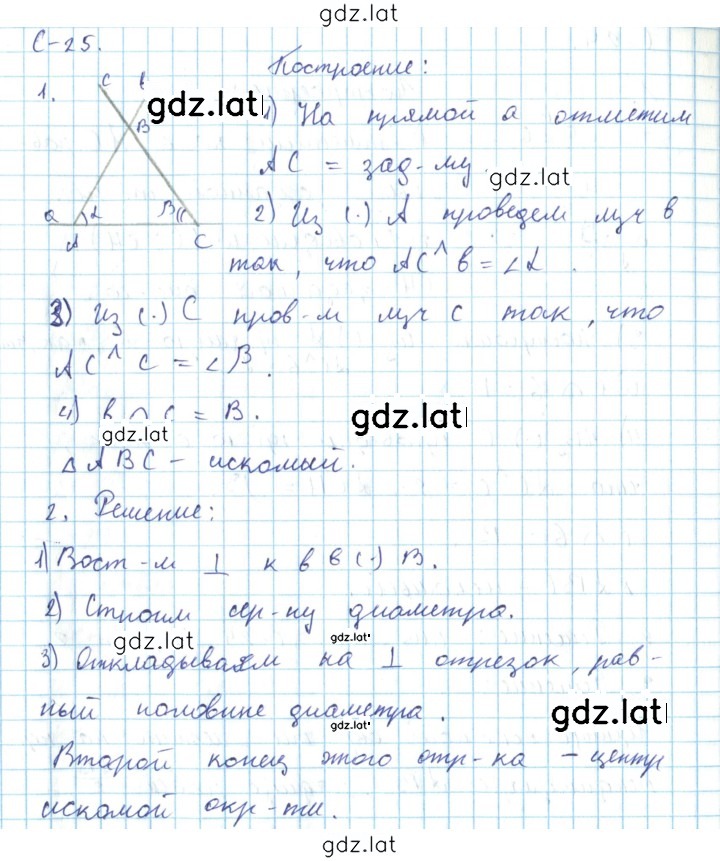 gdz.lat
С-25.
Построение:
1.
c в
B
a α β
A C
gdz.lat
1) На прямой a отметим
AC = зад-му
gdz.lat
2) Из (·) A проведем луч в
так, что AC ^ в = ∠α.
3) Из (·) C пров-м луч c так, что
AC ^ c = ∠β.
4) в ∩ c = B.
gdz.lat
gdz.lat
△ABC – искомый.
2. Решение:
1) Вост-м ⊥ к в в (·) B.
2) Строим сер-ну диаметра.
gdz.lat
gdz.lat
3) Откладываем на ⊥ отрезок, рав-
ный половине диаметра.
gdz.lat
gdz.lat
Второй конец этого отр-ка – центр
искомой окр-ти.
gdz.lat